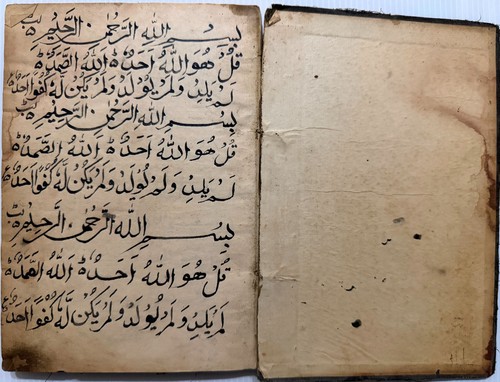 بِسْمِ اللهِ الرَّحْمٰنِ الرَّحِيْمِ
قُلْ هُوَ اللهُ اَحَدٌ اَللهُ الصَّمَدُ
لَمْ يَلِدْ وَلَمْ يُوْلَدْ وَلَمْ يَكُنْ لَّهٗ كُفُوًا اَحَدٌ
بِسْمِ اللهِ الرَّحْمٰنِ الرَّحِيْمِ
قُلْ هُوَ اللهُ اَحَدٌ اَللهُ الصَّمَدُ
لَمْ يَلِدْ وَلَمْ يُوْلَدْ وَلَمْ يَكُنْ لَّهٗ كُفُوًا اَحَدٌ
بِسْمِ اللهِ الرَّحْمٰنِ الرَّحِيْمِ
قُلْ هُوَ اللهُ اَحَدٌ اَللهُ الصَّمَدُ
لَمْ يَلِدْ وَلَمْ يُوْلَدْ وَلَمْ يَكُنْ لَّهٗ كُفُوًا اَحَدٌ